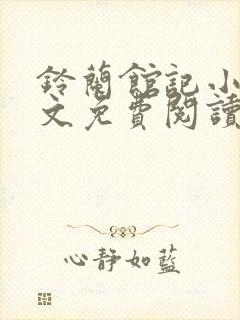 鈴蘭館記小
文免費閱讀
心靜如藍